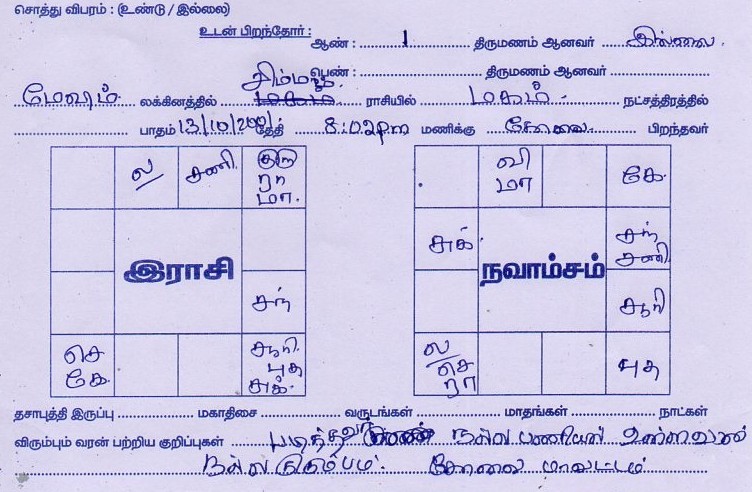 சொத்து விபரம் : (உண்டு / இல்லை)
உடன் பிறந்தோர் : ஆண் : 1 திருமணம் ஆனவர் இல்லை
பெண் : திருமணம் ஆனவர்
மேஷம் லக்கினத்தில் சிம்மம் ராசியில் மகம் நட்சத்திரத்தில்
பாதம் 13/10/2001 தேதி 8:02pm மணிக்கு கோவை பிறந்தவர்
ல சனி குரு ரா மா
இராசி
சந்
செ கே
சூரி புத சுக்
வி மா கே
சுக்
நவாம்சம்
சந் சனி
சூரி
ல செ ரா
புத
தசாபுத்தி இருப்பு மகாதிசை வருடங்கள் மாதங்கள் நாட்கள்
விரும்பும் வரன் பற்றிய குறிப்புகள் படித்தவர் நல்ல பணியில் உள்ளவர்
நல்ல குடும்பம் கோவை மாவட்டம்